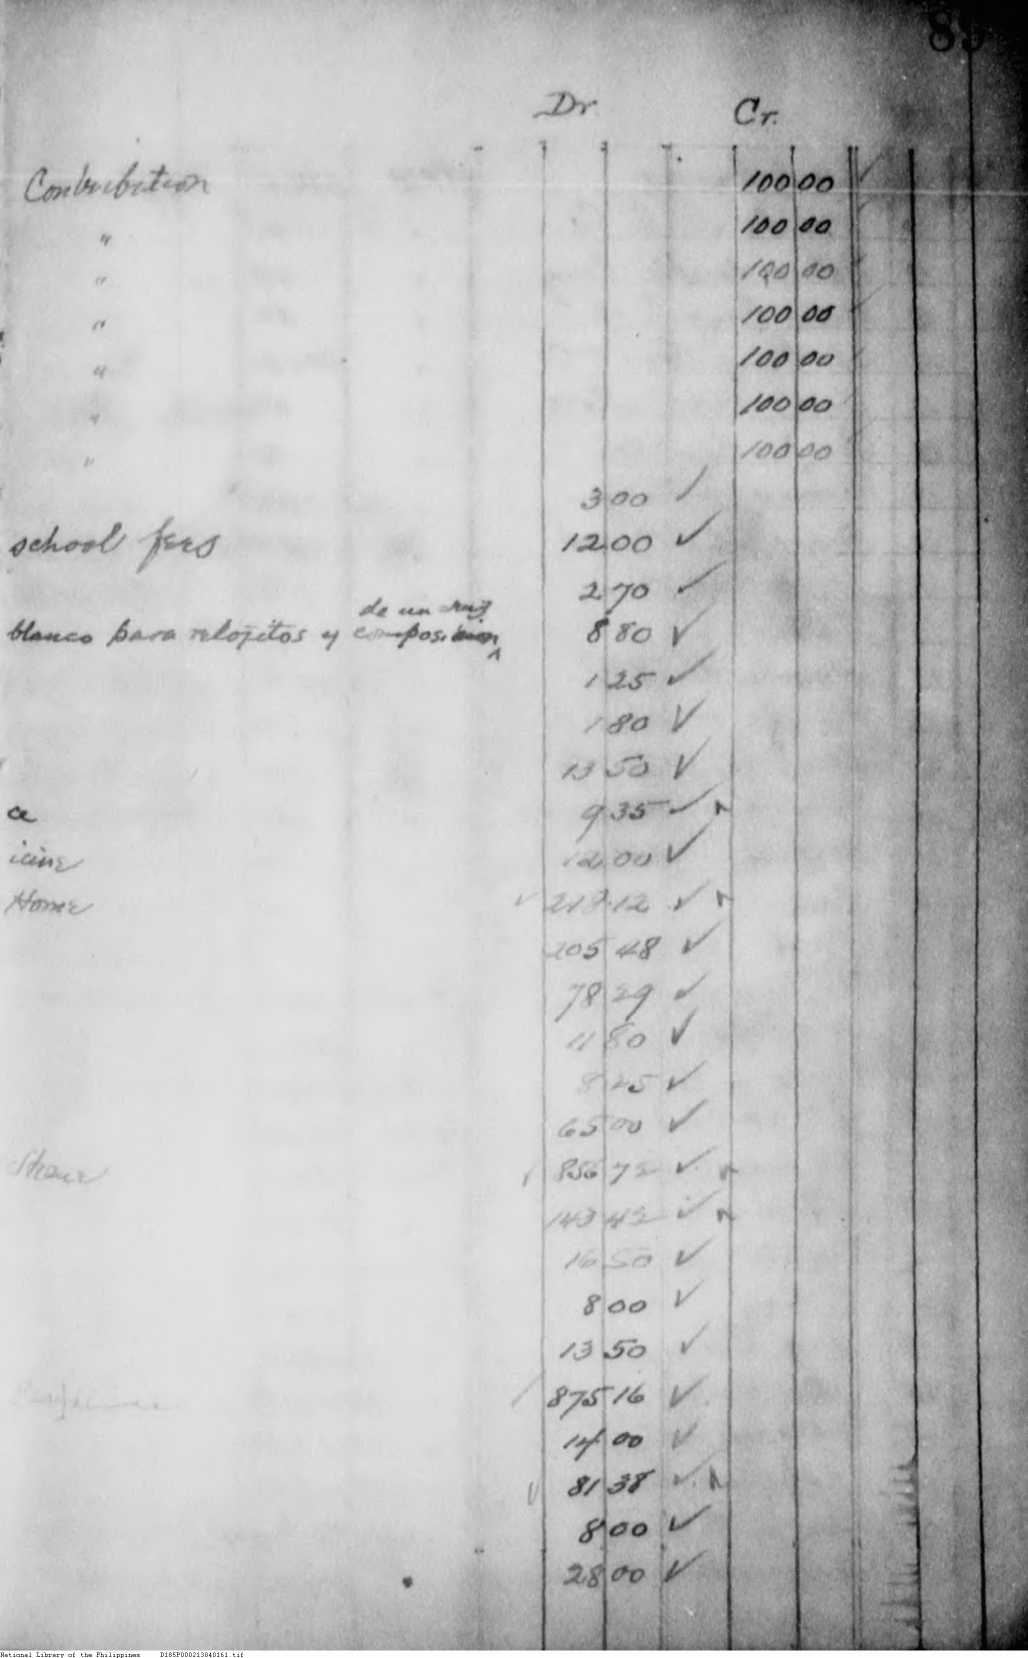 89
Dr. Cr.
Contribution 100 00 ✓
" 100 00
" 100 00
" 100 00
" 100 00
" 100 00
" 100 00
3 00 ✓
school fees 12 00 ✓
2 70 ✓
de un
blanco para relojitos y composicion 8 80 ✓
1 25 ✓
1 80 ✓
13 50 ✓
ce 9 35 ✓
icine 12 00 ✓
Home ✓ 218 12 ✓
205 48 ✓
78 29 ✓
11 80 ✓
8 25 ✓
65 00 ✓
✓ 856 72 ✓
143 42 ✓
16 50 ✓
8 00 ✓
13 50 ✓
875 16 ✓
14 00 ✓
✓ 81 38 ✓
8 00 ✓
28 00 ✓
National Library of the Philippines D185P000213040161.tif